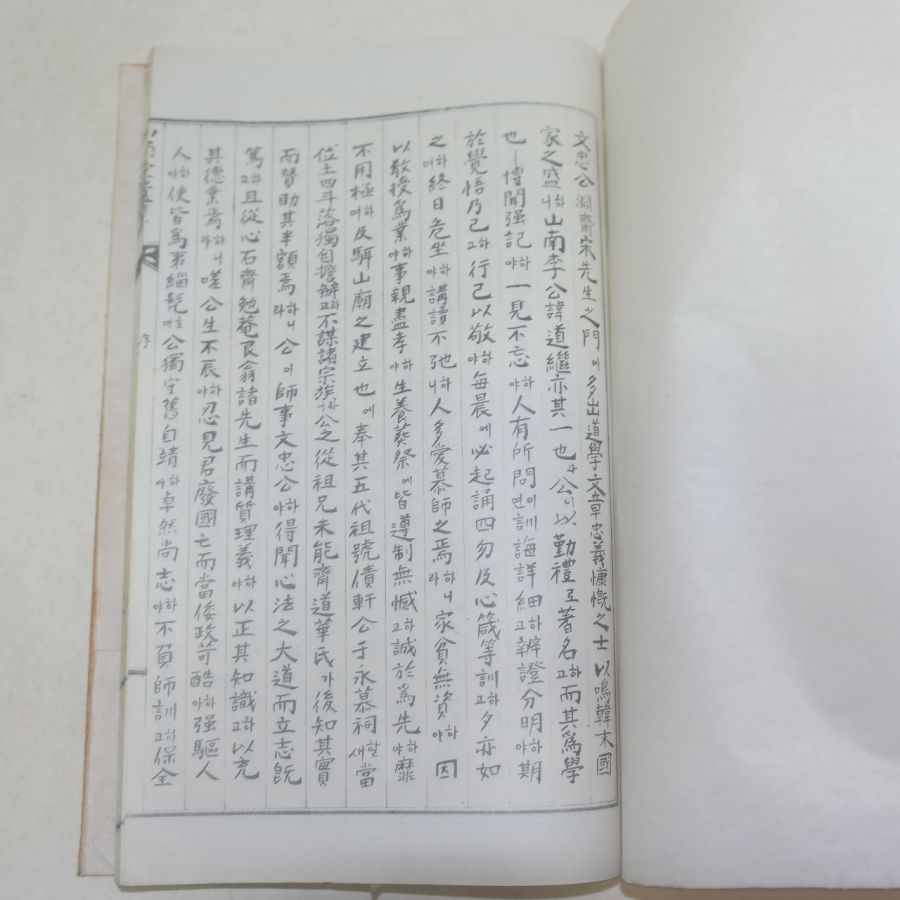 文忠公淵齋宋先生之門이多出道學文章忠義慷慨之士以鳴韓末國
家之盛하니山南李公諱道繼亦其一也라公이以勤禮로著名하고而其爲學
也ㅣ博聞强記하야一見不忘하야人有所問이면訓誨詳細하고辨證分明하야期
於覺悟乃已하고行己以敬하야每晨에必起誦四勿及心箴等訓하고夕亦如
之하며終日危坐하야講讀不弛하니人多愛慕師之焉하니라家貧無資하야因
以敎授爲業하야事親盡孝하야生養葬祭에皆遵制無憾하고誠於爲先하야靡
不用極하며及騈山廟之建立也에奉其五代祖號債軒公于永慕祠할새當
位土四斗落獨自擔辦하고不謀諸宗族이라니公之從祖兄未能齋道華氏가後知其實
而贊助其半額焉하니라公이師事文忠公하야得聞心法之大道而立志旣
篤하고且從心石齋勉菴艮翁諸先生而講質理義하야以正其知識하고以充
其德業焉하니라嗟公生不辰하야忍見君廢國亡而當倭政苛酷하야强驅人
人하야使皆爲男緇髡호대公獨守舊自靖하야卓然尚志하야不負師訓하고保全
序